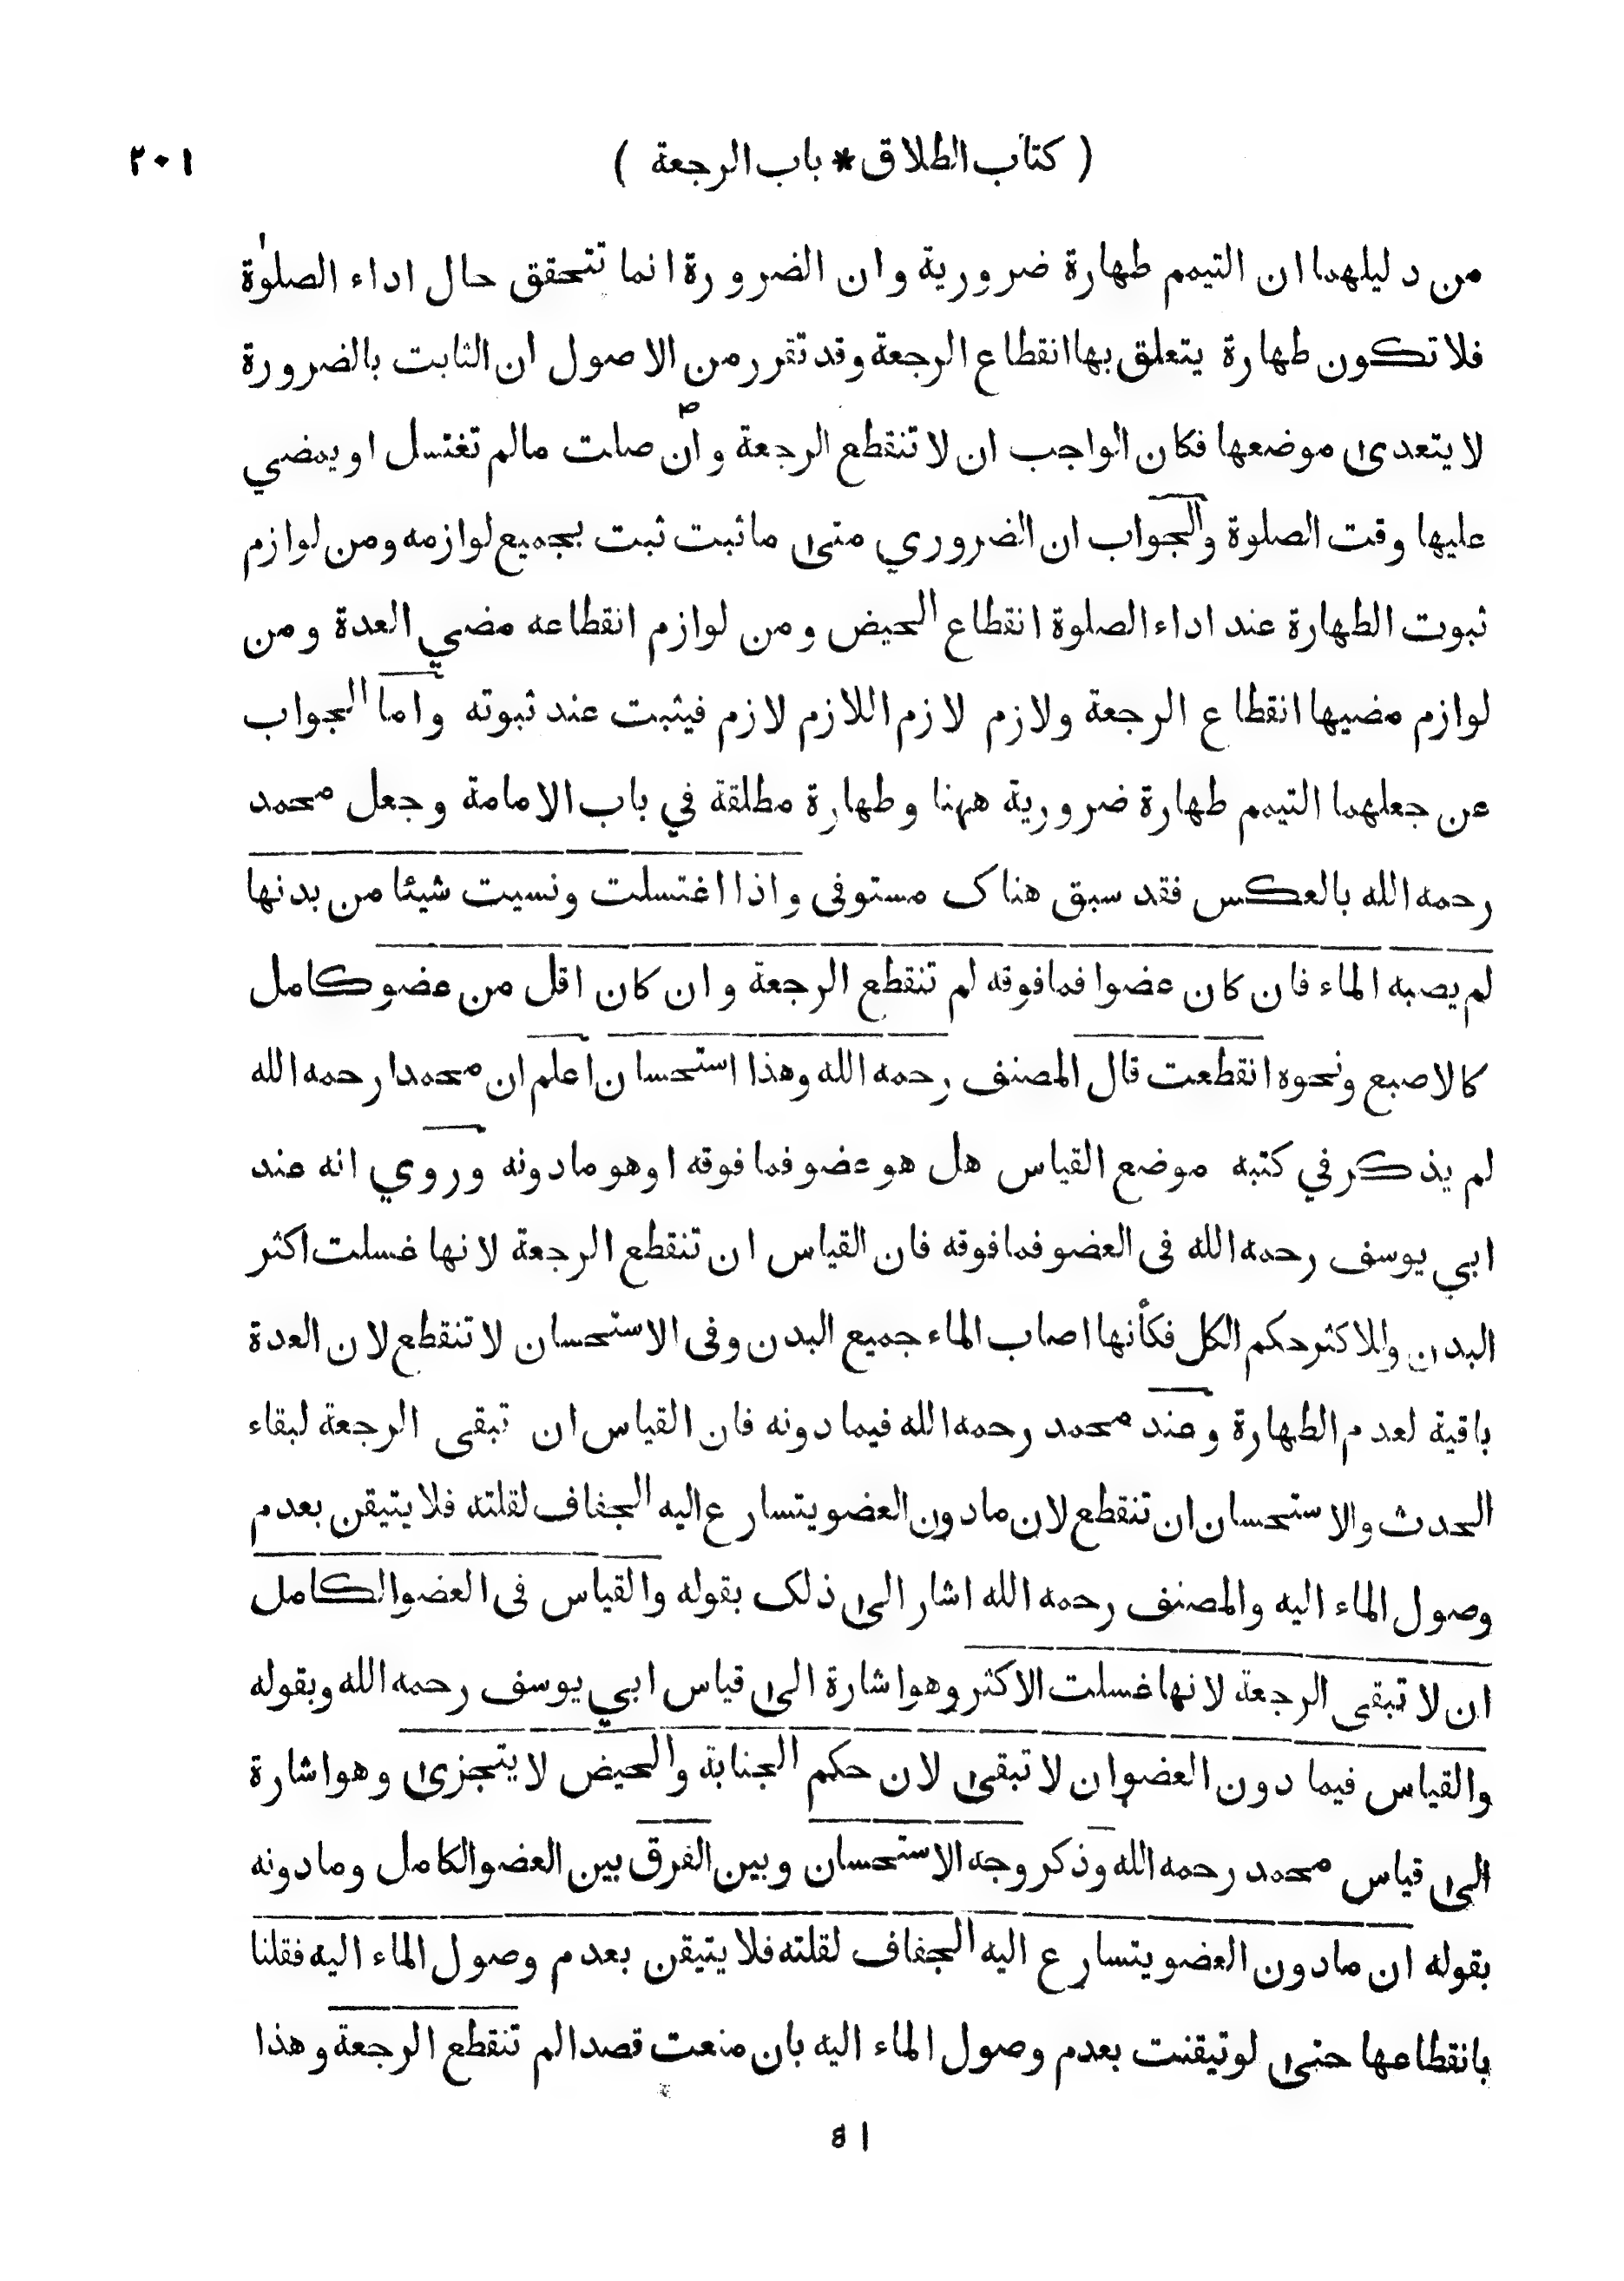 ( كتاب الطلاق * باب الرجعة ) ٢٠١
من دليلهما ان التيمم طهارة ضرورية وان الضرورة انما تتحقق حال اداء الصلوٰة
فلا تكون طهارة يتعلق بها انقطاع الرجعة وقد تقرر من الاصول ان الثابت بالضرورة
لا يتعدى موضعها فكان الواجب ان لا تنقطع الرجعة وان صلت مالم تغتسل او يمضي
عليها وقت الصلوة والجواب ان الضروري متى ما ثبت ثبت بجميع لوازمه ومن لوازم
ثبوت الطهارة عند اداء الصلوة انقطاع الحيض ومن لوازم انقطاعه مضي العدة ومن
لوازم مضيها انقطاع الرجعة ولازم لازم اللازم لازم فيثبت عند ثبوته واما الجواب
عن جعلهما التيمم طهارة ضرورية ههنا وطهارة مطلقة في باب الامامة وجعل محمد
رحمه الله بالعكس فقد سبق هناك مستوفى واذا اغتسلت ونسيت شيئا من بدنها
لم يصبه الماء فان كان عضوا فما فوقه لم تنقطع الرجعة وان كان اقل من عضو كامل
كالاصبع ونحوه انقطعت قال المصنف رحمه الله وهذا استحسان اعلم ان محمدا رحمه الله
لم يذكر في كتبه موضع القياس هل هو عضو فما فوقه او هو مادونه وروي انه عند
ابي يوسف رحمه الله فى العضو فما فوقه فان القياس ان تنقطع الرجعة لانها غسلت اكثر
البدن وللاكثر حكم الكل فكأنها اصاب الماء جميع البدن وفى الاستحسان لا تنقطع لان العدة
باقية لعدم الطهارة وعند محمد رحمه الله فيما دونه فان القياس ان تبقى الرجعة لبقاء
الحدث والاستحسان ان تنقطع لان مادون العضو يتسارع اليه الجفاف لقلته فلا يتيقن بعدم
وصول الماء اليه والمصنف رحمه الله اشار الى ذلك بقوله والقياس فى العضو الكامل
ان لا تبقى الرجعة لانها غسلت الاكثر وهو اشارة الى قياس ابي يوسف رحمه الله وبقوله
والقياس فيما دون العضو ان لا تبقى لان حكم الجنابة والحيض لا يتجزى وهو اشارة
الى قياس محمد رحمه الله وذكر وجه الاستحسان وبين الفرق بين العضو الكامل ومادونه
بقوله ان مادون العضو يتسارع اليه الجفاف لقلته فلا يتيقن بعدم وصول الماء اليه فقلنا
بانقطاعها حتى لو تيقنت بعدم وصول الماء اليه بان منعت قصدا لم تنقطع الرجعة وهذا